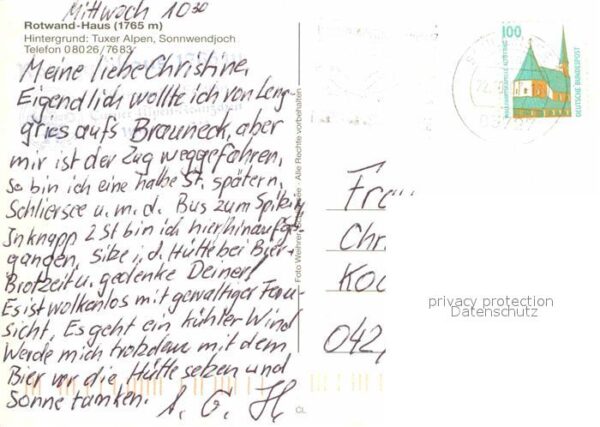 Mittwoch 10³⁰
Rotwand-Haus (1765 m)
Hintergrund: Tuxer Alpen, Sonnwendjoch
Telefon 08026/7683
Meine liebe Christine,
Eigendlich wollte ich von Leng-
gries aufs Brauneck, aber
mir ist der Zug weggefahren,
So bin ich eine halbe St. spätern,
Schliersee u. m. d. Bus zum Spitzing
In knapp 2 St bin ich hierhinaufge-
gangen, sitze i. d. Hütte bei Bier +
Brotzeit u. gedenke Deiner!
Es ist wolkenlos mit gewaltiger Fern-
sicht, Es geht ein kühler Wind
Werde mich trobzdem mit dem
Bier vor die Hütte setzen und
Sonne tanken.
Foto Weihrer
Alle Rechte vorbehalten
CL
100
WALLFAHRTSKAPELLE ALTÖTTING
DEUTSCHE BUNDESPOST
Fra
Chr
Koc
042
privacy protection
Datenschutz